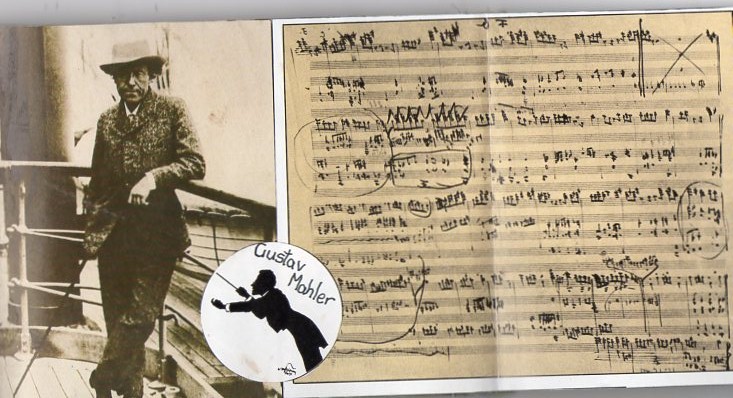 Gustav
Mahler